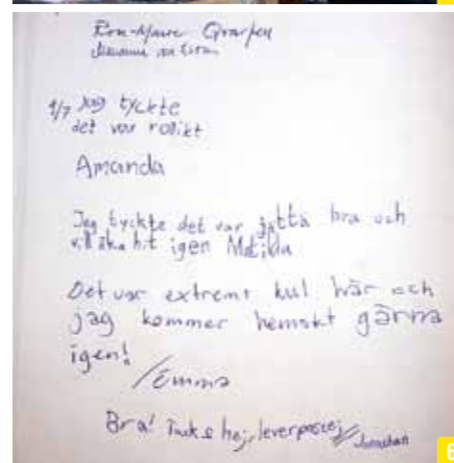 1/7 Jag tyckte
det var rolikt
Amanda
Jag tyckte det var jätta bra och
vill åka hit igen Matilda
Det var extremt kul här och
jag kommer hemskt gärna
igen!
/Emma
Bra! Tack & hej, leverpastej // Jonathan
6